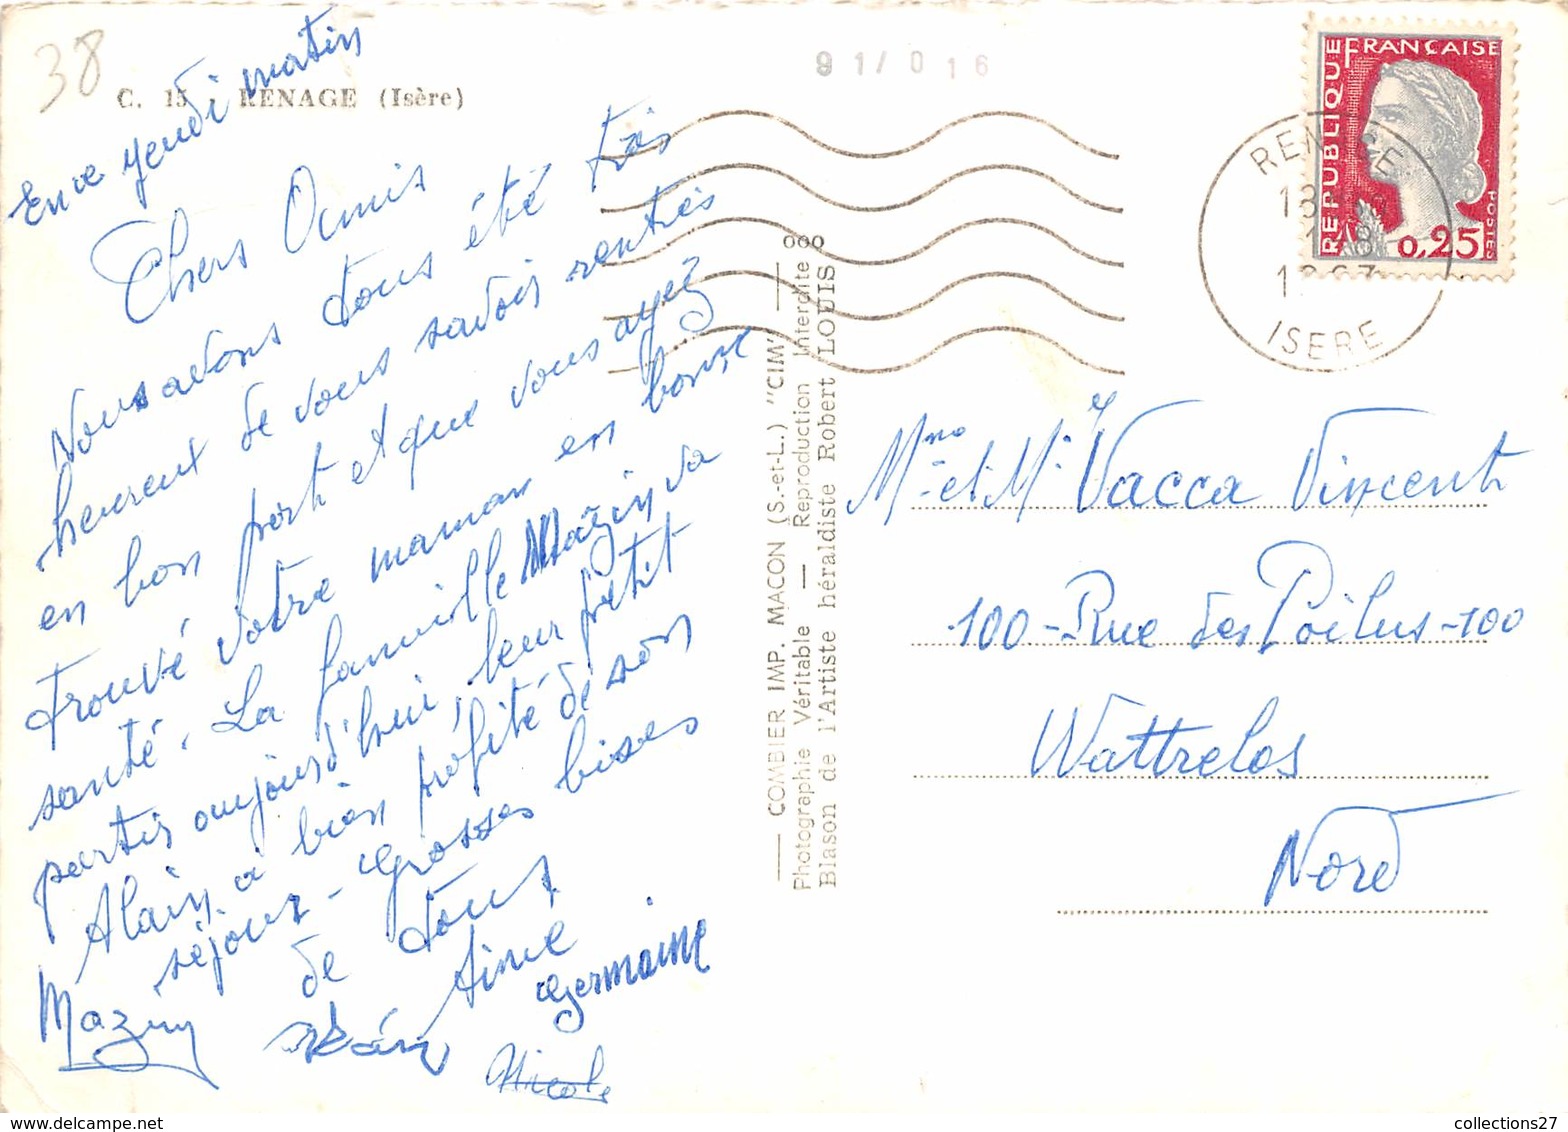 38
C. 15 RENAGE (Isère)
91/016
En ce Jeudi matin
Chers Amis
Nous avons tous été très
heureux de vous savoir rentrés
en bon port et que vous ayez
trouvé votre maman en bonne
santé. La famille Mazin va
partir aujourd'hui, leur petit
Alain a bien profité de son
séjour - Grosses bises
de tous
Aimé
Germaine
Mazin
Nicole
— COMBIER IMP. MACON (S.-et-L.) "CIM" —
Photographie Véritable — Reproduction Interdite
Blason de l'Artiste héraldiste Robert LOUIS
000
REPUBLIQUE FRANÇAISE
POSTES
0,25
RENAGE
ISERE
Mme et M. Vacca Vincent
100 - Rue des Poilus - 100
Wattrelos
Nord
collections27